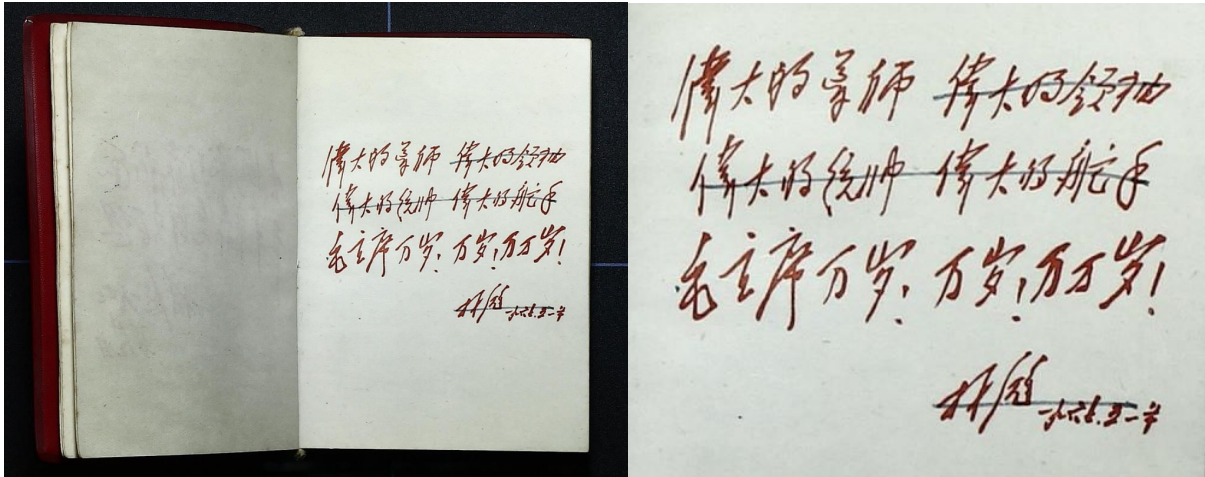 偉大的导师 偉大的领袖
偉大的统帅 偉大的舵手
毛主席万岁！万岁！万万岁！
林彪 一九六七.五一节
偉大的导师 偉大的领袖
偉大的统帅 偉大的舵手
毛主席万岁！万岁！万万岁！
林彪 一九六七.五一节